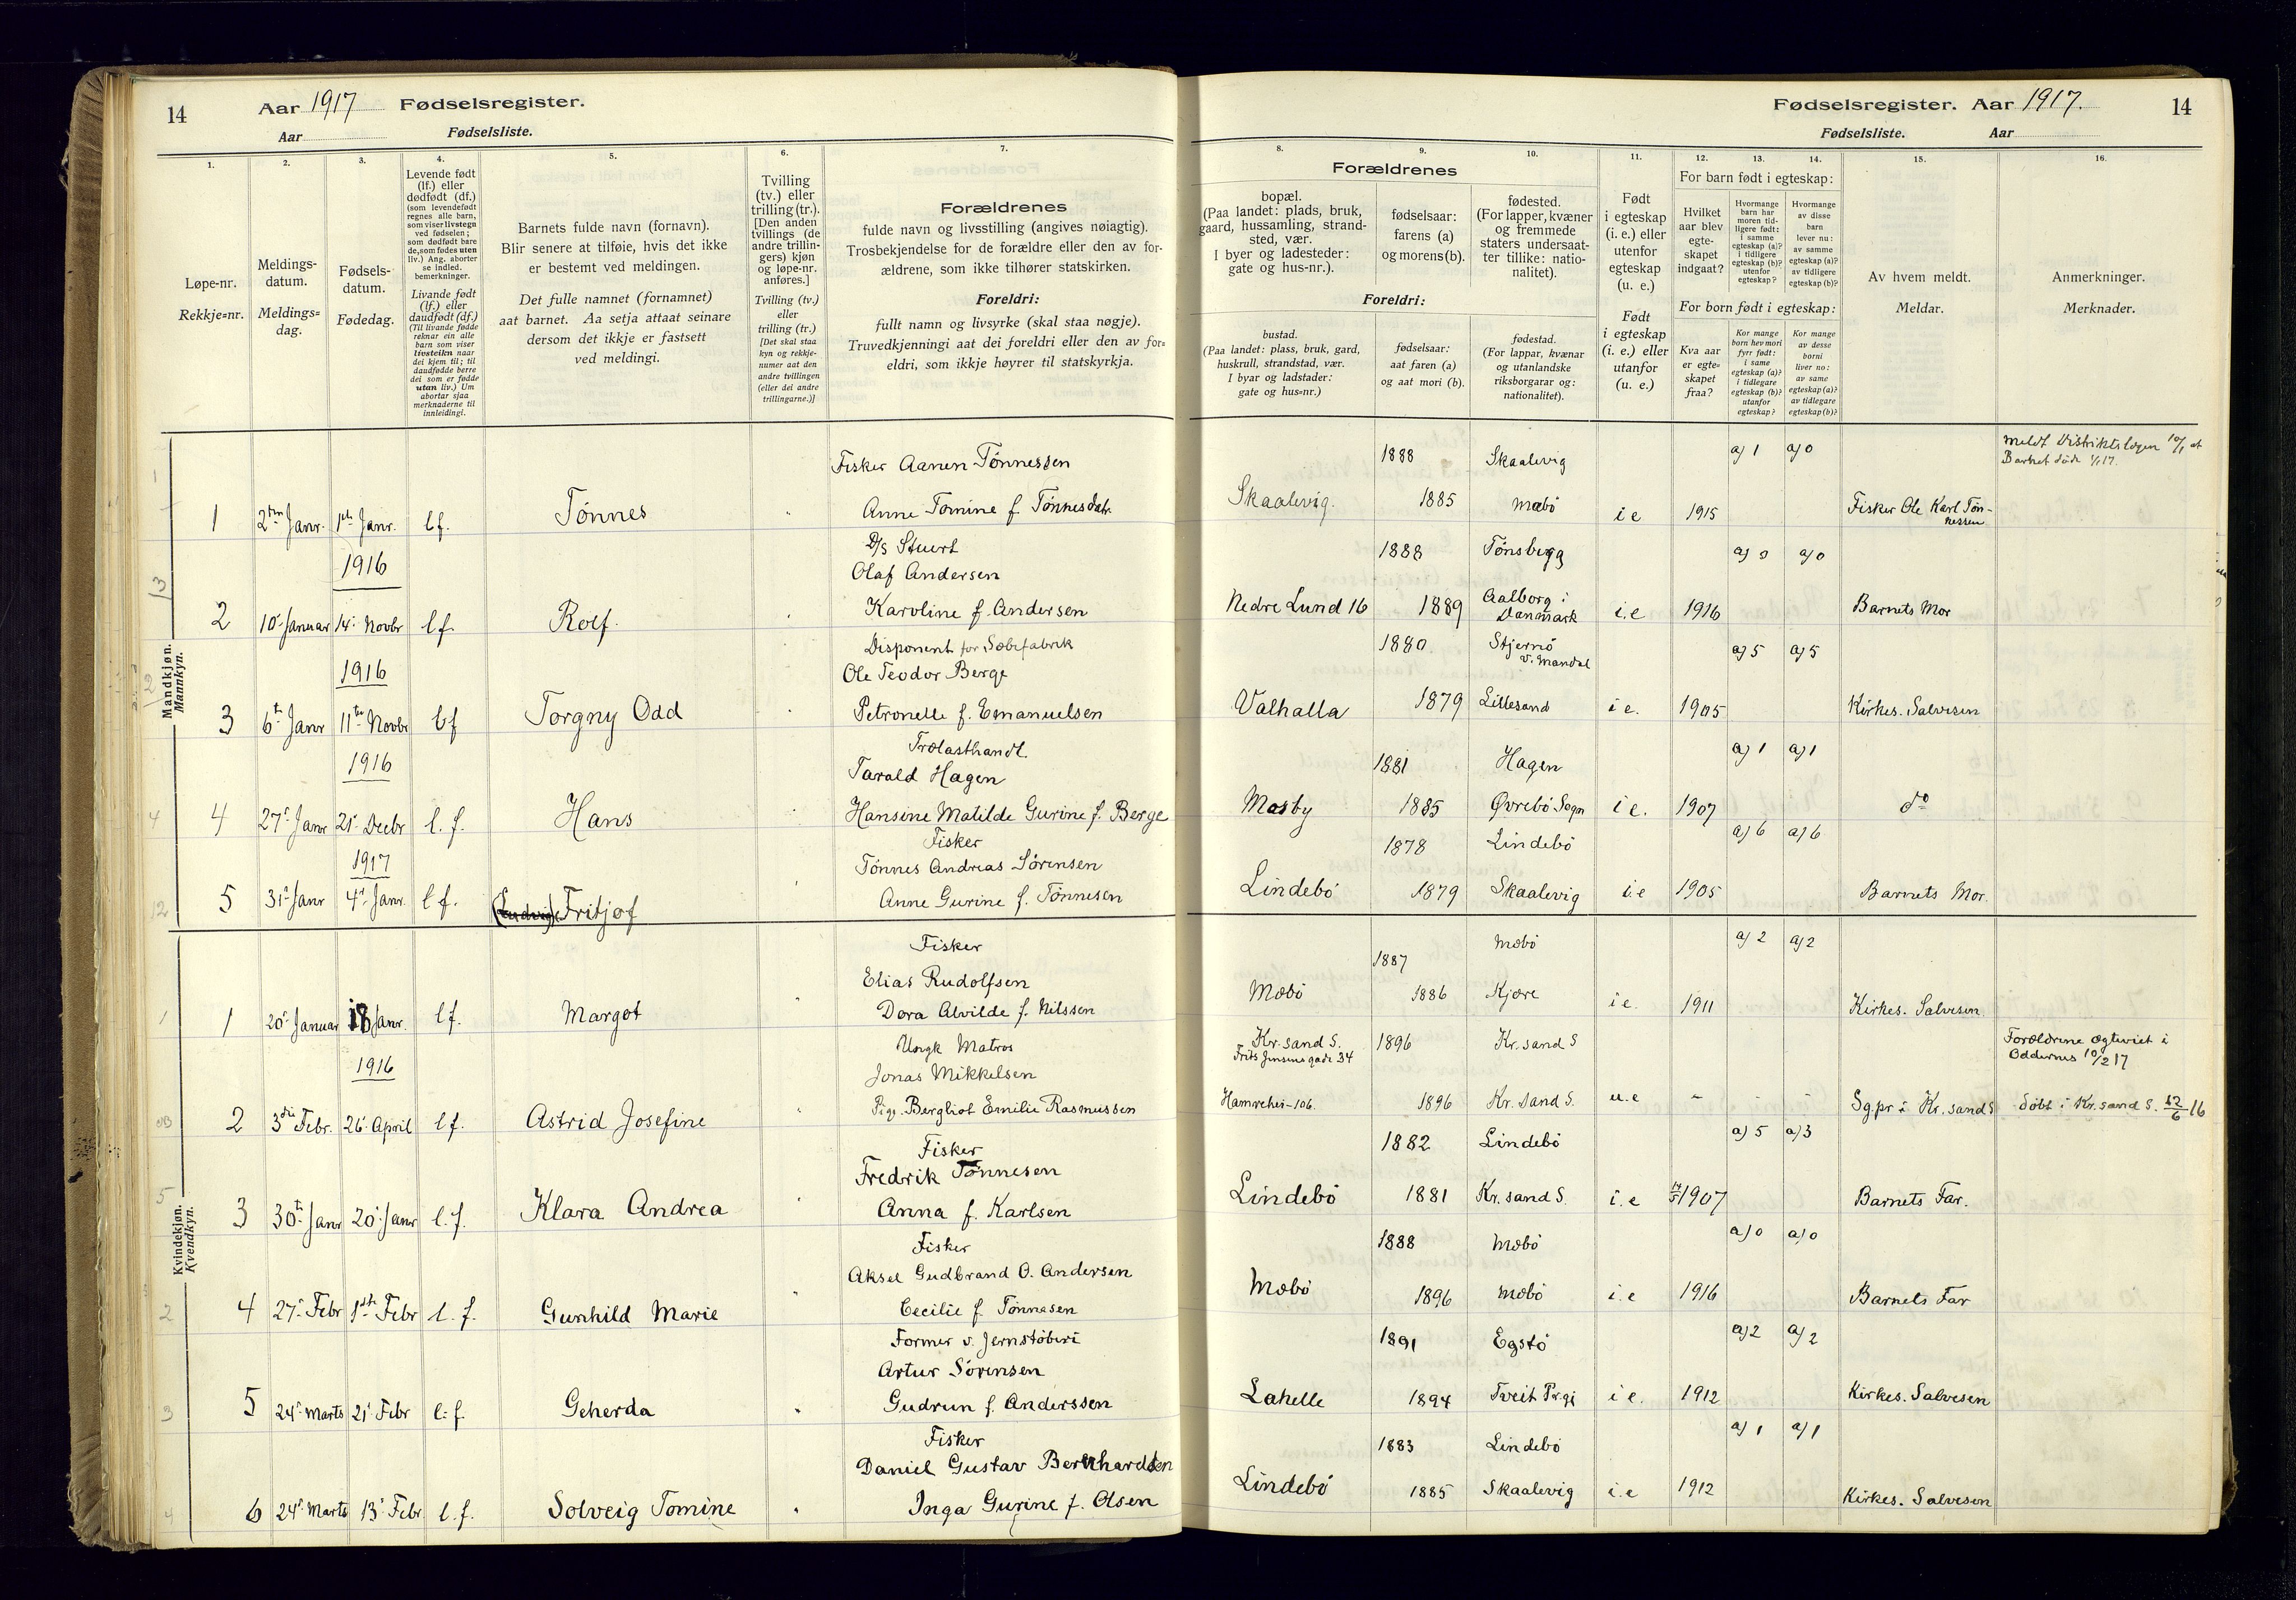 14 Aar 1917 Fødselsregister.
Aar Fødselsliste.
1. 2. 3. 4. 5. 6. 7.
Løpe-nr.
Rekkje=nr.
Meldings-
datum.
Meldings=
dag.
Fødsels-
datum.
Fødedag.
Levende født
(lf.) eller
dødfødt (df.)
(som levendefødt
regnes alle barn,
som viser livstegn
ved fødselen;
som dødfødt bare
de, som fødes uten
liv.) Ang. aborter
se indled.
bemerkninger.
Livande født
(lf.) eller
daudfødt (df.)
(Til livande fødde
reknar ein alle
barn som viser
livsteikn naar
dei kjem til; til
daudfødde berre
dei som er fødde
utan liv.) Um
abortar sjaa
merknaderne til
innleidingi.
Barnets fulde navn (fornavn).
Blir senere at tilføie, hvis det ikke
er bestemt ved meldingen.
Det fulle namnet (fornamnet)
aat barnet. Aa setja attaat seinare
dersom det ikkje er fastsett
ved meldingi.
Tvilling
(tv.) eller
trilling (tr.).
[Den anden
tvillings (de
andre trillin-
gers) kjøn
og løpe-nr.
anføres.]
Tvilling (tv.)
eller
trilling (tr.)
[Det skal staa
kyn og rekkje-
numer aat den
andre tvillingen
(eller dei andre
trillingarne.)]
Forældrenes
fulde navn og livsstilling (angives nøiagtig).
Trosbekjendelse for de forældre eller den av for-
ældrene, som ikke tilhører statskirken.
Foreldri:
fullt namn og livsyrke (skal staa nøgje).
Truvedkjenningi aat dei foreldri eller den av for=
eldri, som ikkje høyrer til statskyrkja.
Mandkjøn.
Mannkyn.
Fisker Aanen Tønnessen
1 2den Janr. 1ste Janr. lf. Tønnes Anne Tomine f. Tønnesdatr.
1916
D/s Stuert
Olaf Andersen
2 10. Januar 14. Novbr lf. Rolf. Karoline f. Andersen
1916
Disponent for Sæbefabrik
Ole Teodor Berge
3 6te Janr 11te Novbr lf Torgny Odd Petronelle f. Emanuelsen
1916
Trælasthandl.
Tarald Hagen
4 27. Janr 21. Decbr l. f. Hans Hansine Matilde Gurine f. Berge
1917
Fisker
Tønnes Andreas Sørensen
5 31. Janr 4. Janr. lf. (Ludvig) Fritjof Anne Gurine f. Tønnesen
Kvindekjøn.
Kvendkyn.
Fisker
Elias Rudolfsen
1 20. Januar 18 Janr. lf. Margot Dora Alvilde f. Nilssen
1916
Ungk Matros
Jonas Mikkelsen
2 3die Febr. 26. April lf. Astrid Josefine Pige. Bergliot Emilie Rasmussen
Fisker
Fredrik Tønnesen
3 30te Janr 20. Janr l. f. Klara Andrea Anna f. Karlsen
Fisker
Aksel Gudbrand O. Andersen
4 27. Febr 1ste Febr l. f. Gunhild Marie Cecilie f. Tønnesen
Former v. Jernstøberi
Artur Sørensen
5 24. Marts 21. Febr l. f. Geherda Gudrun f. Anderssen
Fisker
Daniel Gustav Bernhardsen
6 24. Marts 13. Febr. l. f. Solveig Tomine Inga Gurine f. Olsen
Fødselsregister. Aar 1917. 14
Fødselsliste. Aar
8. 9. 10. 11. 12. 13. 14. 15. 16.
Forældrenes
bopæl.
(Paa landet: plads, bruk,
gaard, hussamling, strand-
sted, vær.
I byer og ladesteder:
gate og hus-nr.).
fødselsaar:
farens (a)
og morens (b).
fødested.
(For lapper, kvæner
og fremmede
staters undersaat-
ter tillike: natio-
nalitet).
Foreldri:
bustad.
(Paa landet: plass, bruk, gard,
huskrull, strandstad, vær.
I byar og ladstader:
gate og hus=nr.)
fødselsaar:
aat faren (a)
og aat mori (b).
fødestad.
(For lappar, kvænar
og utanlandske
riksborgarar og:
nationalitet).
Født
i egteskap
(i. e.) eller
utenfor
egteskap
(u. e.)
Født
i egteskap
(i. e.) eller
utanfor
(u. e.)
For barn født i egteskap:
Hvilket
aar blev
egte-
skapet
indgaat?
Hvormange
barn har
moren tid-
ligere født:
i samme
egteskap (a)?
i tidligere
egteskap (b)?
utenfor
egteskap?
Hvormange
av disse
barn
lever nu:
av samme
egteskap (a)?
av tidligere
egteskap (b)?
For born født i egteskap:
Kva aar
er egte=
skapet
fraa?
Kor mange
born hev mori
fyrr født:
i same
egteskap (a)?
i tidlegare
egteskap (b)?
utanfor
egteskap?
Kor mange
av desse
borni
liver no:
av same
egteskap (a)?
av tidlegare
egteskap (b)?
Av hvem meldt.
Meldar.
Anmerkninger.
Merknader.
1888 Skaalevig a) 1 a) 0 Meldt Distriktslægen 10/1 at
Barnet døde 1/1 17.
Skaalevig. 1885 Mæbö i e 1915 Fisker Ole Karl Tøn-
nessen
1888 Tønsberg a) 0 a) 0
Nedre Lund 16 1889 Aalborg i
Danmark i. e 1916 Barnets Mor
1880 Stjernö
v. Mandal a) 5 a) 5
Valhalla 1879 Lillesand i e. 1905 Kirkes. Salvesen
1881 Hagen a) 1 a) 1
Mosby 1885 Øvrebö Sogn i e. 1907 do
1878 Lindebö a) 6 a) 6
Lindebö 1879 Skaalevig i. e 1905 Barnets Mor.
1887 Mæbö a) 2 a) 2
Mæbö 1886 Kjøre i e. 1911 Kirkes. Salvesen
Kr. sand S.
Frits Jensens gade 34 1896 Kr. sand S Forældrene ægteviet i
Oddernes 10/2 17
Hamrehei-106. 1896 Kr. sand S. u. e - - - Sg. pr i Kr. sand S døbt i Kr. sand S. /6 16
1882 Lindebö a) 5 a) 3
Lindebö 1881 Kr. sand S. i. e 1907 Barnets Far.
1888 Mæbö a) 0 a) 0
Mæbö 1896 Mæbö i. e 1916 Barnets Far
1891 Egstö a) 2 a) 2
Lahelle 1894 Tveit Prgj i e. 1912 Kirkes. Salvesen
1883 Lindebö a) 1 a) 1
Lindebö 1885 Skaalevig i. e 1912 Kirkes. Salvesen